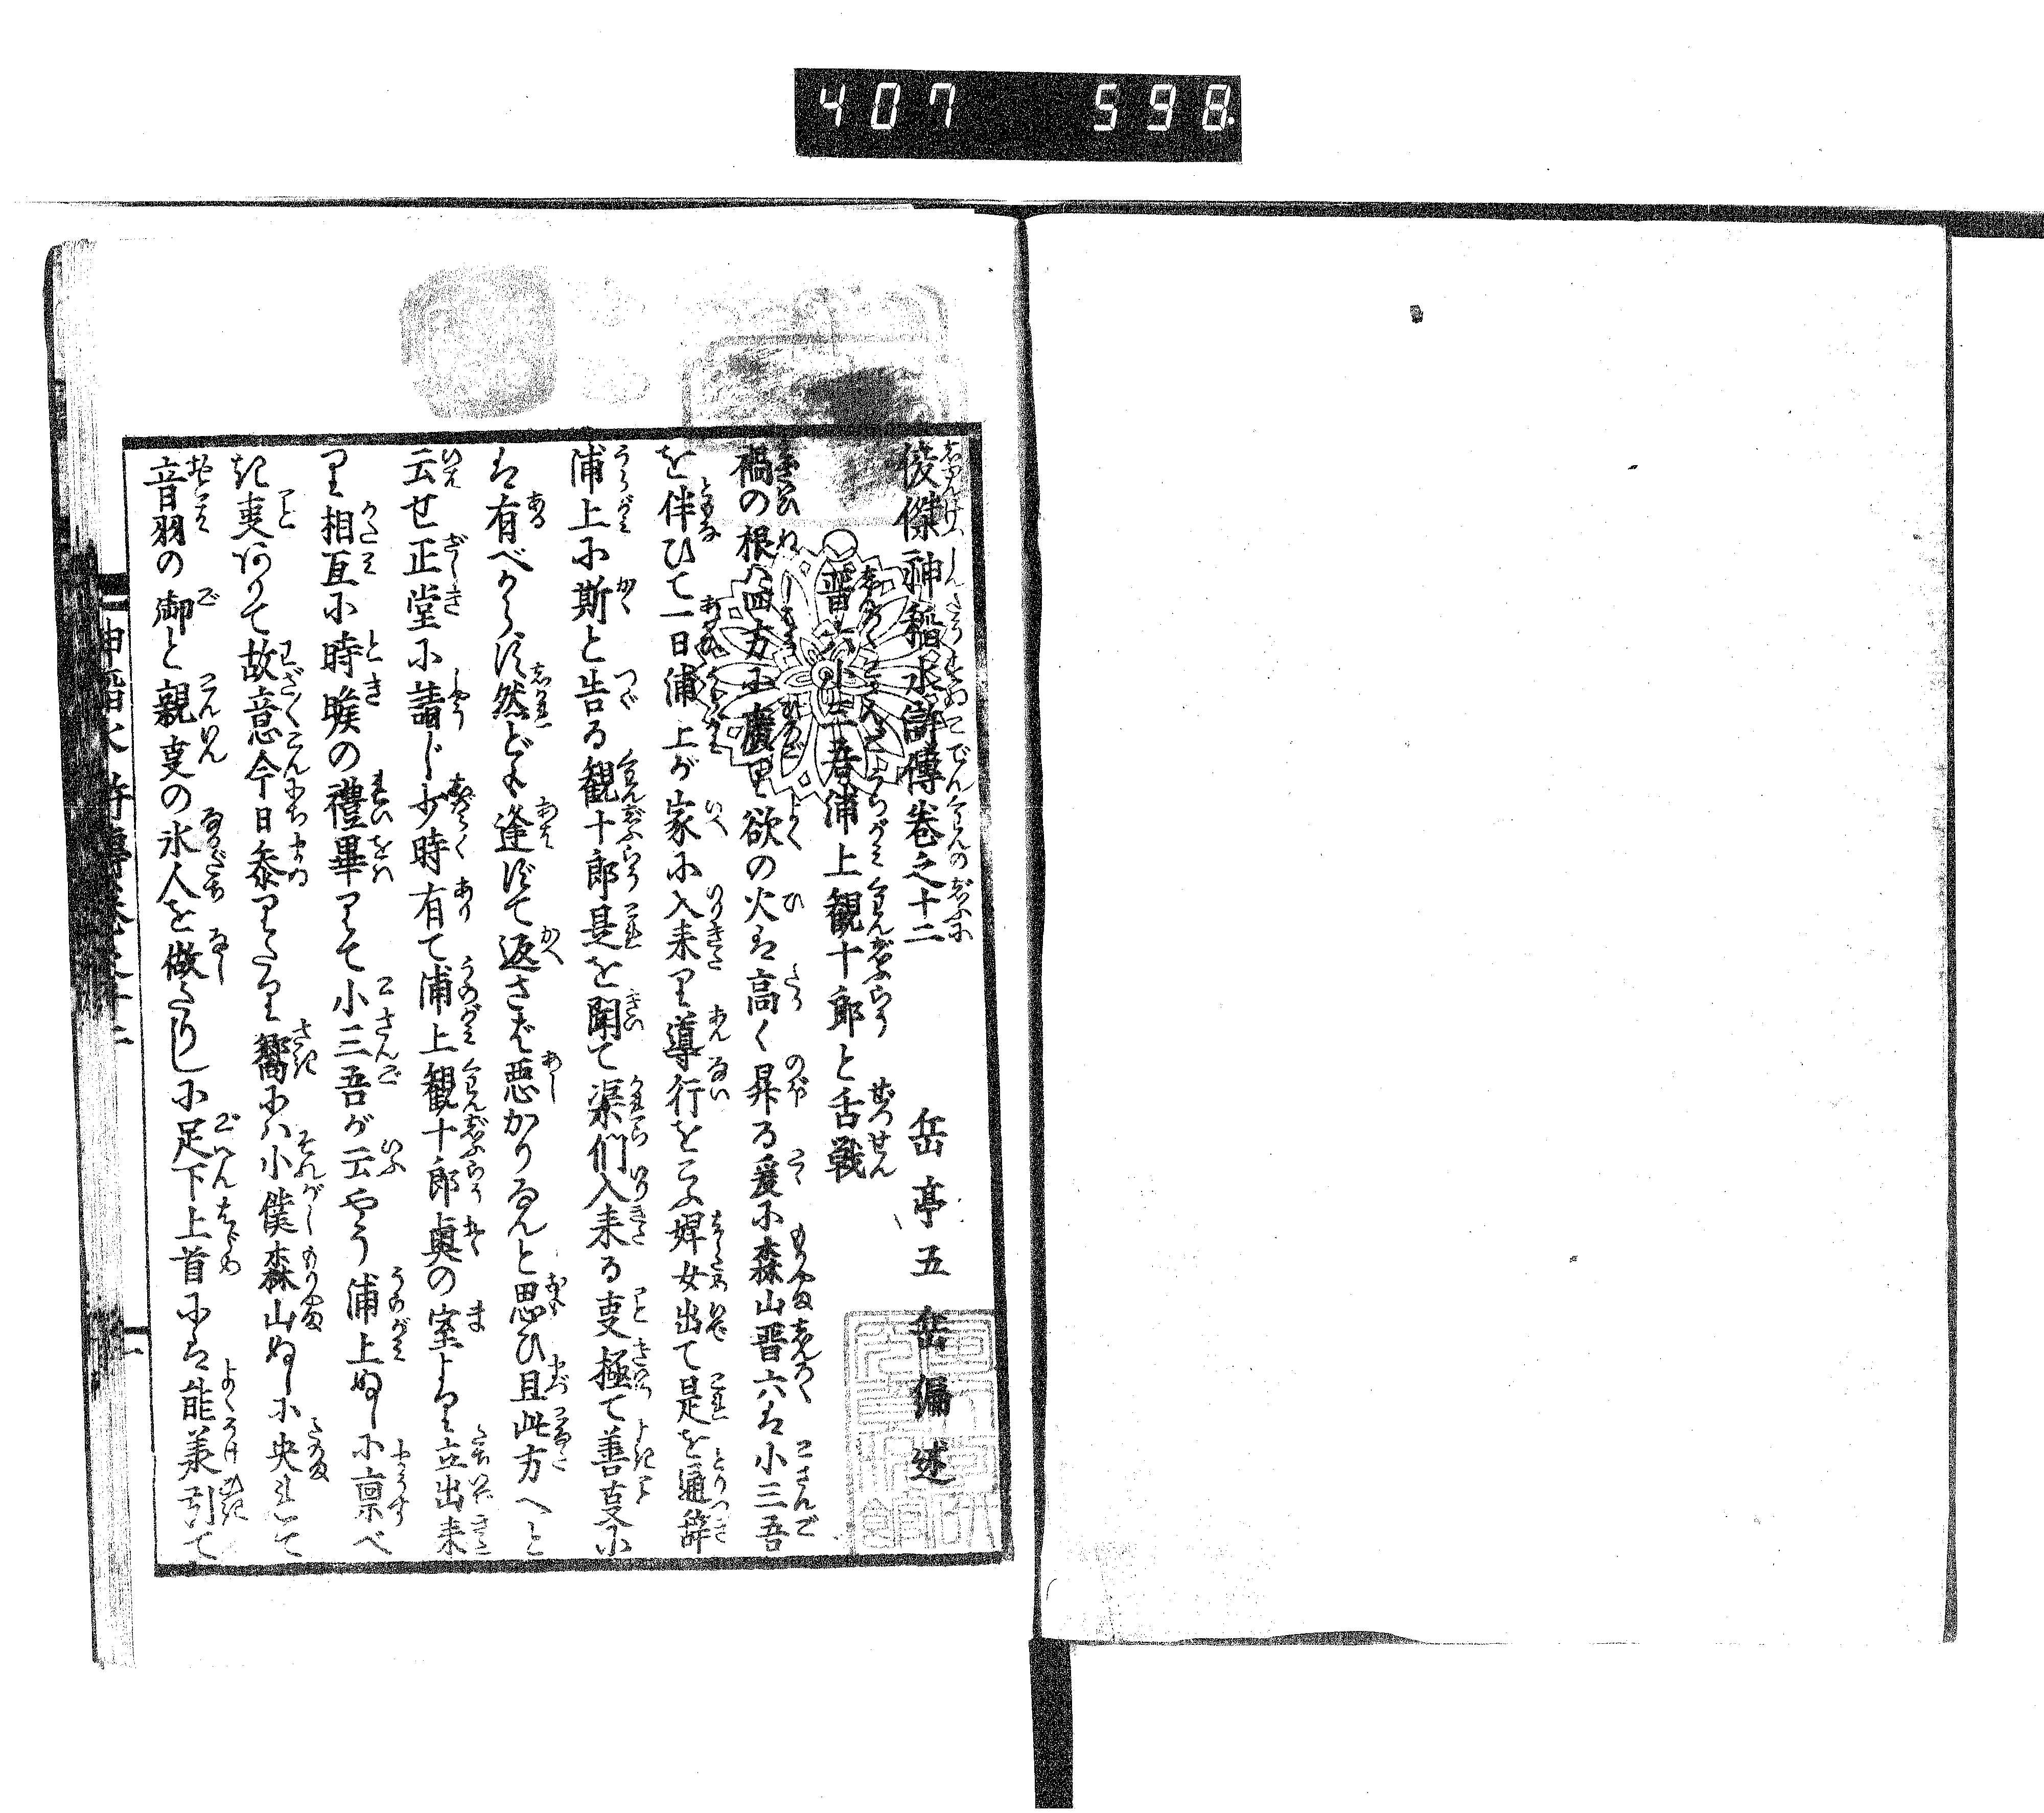 407 598
俊傑神稲水滸傳巻之十二
岳亭五岳編述
晋六小三吾浦上観十郎と舌戦
禍の根ハ四方に廣り欲の火は高く昇る爰に森山晋六は小三吾
を伴ひて一日浦上が家に入来り導行をこふ婢女出て是を通辞
浦上に斯と告る観十郎是を聞て渠們入来る叓極て善叓に
は有べからず然ども逢ずて返さば悪かりなんと思ひ且此方へと
云せ正堂に請じ少時有て浦上観十郎奥の室より立出来
り相互に時候の禮畢りて小三吾が云やう浦上ぬしに禀べ
き叓ありて故意今日参りたり嚮にハ小僕森山ぬしに央れて
音羽の御と親叓の氷人を做たりしに足下上首には能兼引て